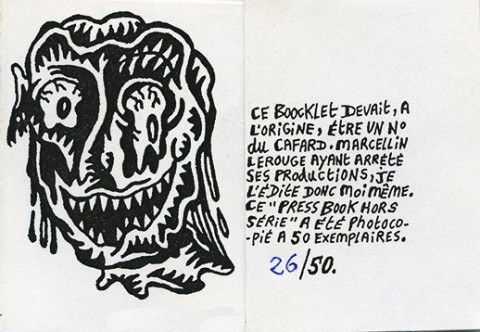 CE BOOCKLET DEVAIT, A
L'ORIGINE, ÉTRE UN No
du CAFARD. MARCELLIN
LEROUGE AYANT ARRÉTÉ
SES PRODUCTIONS, JE
L'ÉDITE DONC MOI MÊME.
CE "PRESS BOOK HORS
SÉRIE" A ETÉ PHOTOCO-
-PIÉ A 50 EXEMPLAIRES.
26/50.